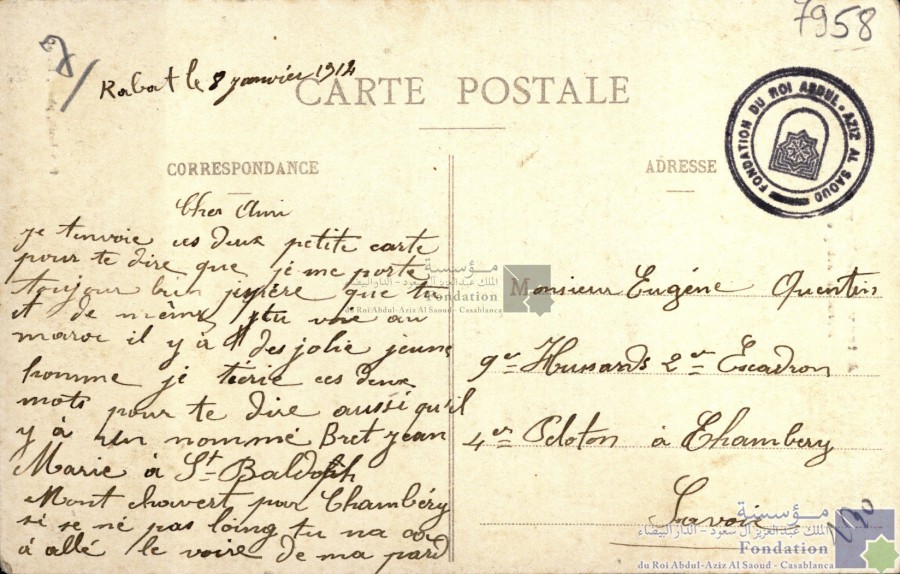 7958
Rabat le 8 janvier 1912
CARTE POSTALE
FONDATION DU ROI ABDUL-AZIZ AL SAOUD
CORRESPONDANCE
Cher Ami
je t'envoie ces deux petite carte
pour te dire que je me porte
toujour bien jespére que tu
et de même tu voie au
maroc il y à des jolie jeune
homme je técrie ces deux
mots pour te dire aussi qu'il
y à un nommé Bret jean
Marie à St Baldoph
Mont chavert pour Chambéry
si se né pas loing tu na
à allé le voire de ma pard
ADRESSE
Monsieur Eugéne Quentin
9er Hussards 2er Escadron
4er Peloton à Chambery
Savoie
مؤسسة
الملك عبد العزيز آل سعود - الدار البيضاء
Fondation
du Roi Abdul-Aziz Al Saoud - Casablanca
مؤسسة
الملك عبد العزيز آل سعود - الدار البيضاء
Fondation
du Roi Abdul-Aziz Al Saoud - Casablanca